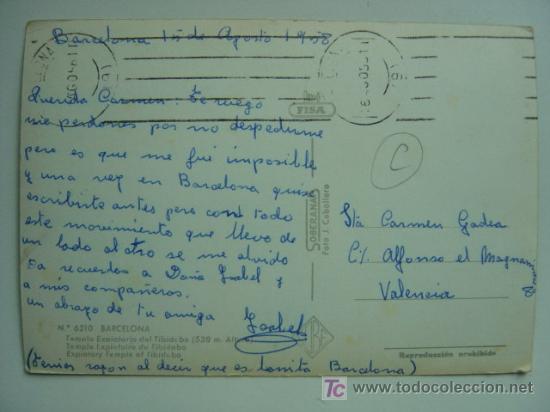 Barcelona 15 de Agosto 1958
Querida Carmen: Te ruego
me perdones por no despedirme
pero es que me fué imposible
y una vez en Barcelona quise
escribirte antes pero con todo
este movimiento que llevo de
un lado al otro se me olvido
Da recuerdos a Doña Isabel y
a mis compañeros.
un abrazo de tu amiga Isabel
N.º 6210 BARCELONA
Templo Expiatorio del Tibidabo (530 m.
Temple Expiatoire du Tibidabo
Expiatory Temple of Tibidabo
(Tenias razon al decir que es bonita Barcelona)
FISA
SOBERANAS
Foto J. Caballero
C
Sta Carmen Gadea
C/. Alfonso el Magnanimo
8
Valencia
Reproducción prohibida
todocoleccion
www.todocoleccion.net